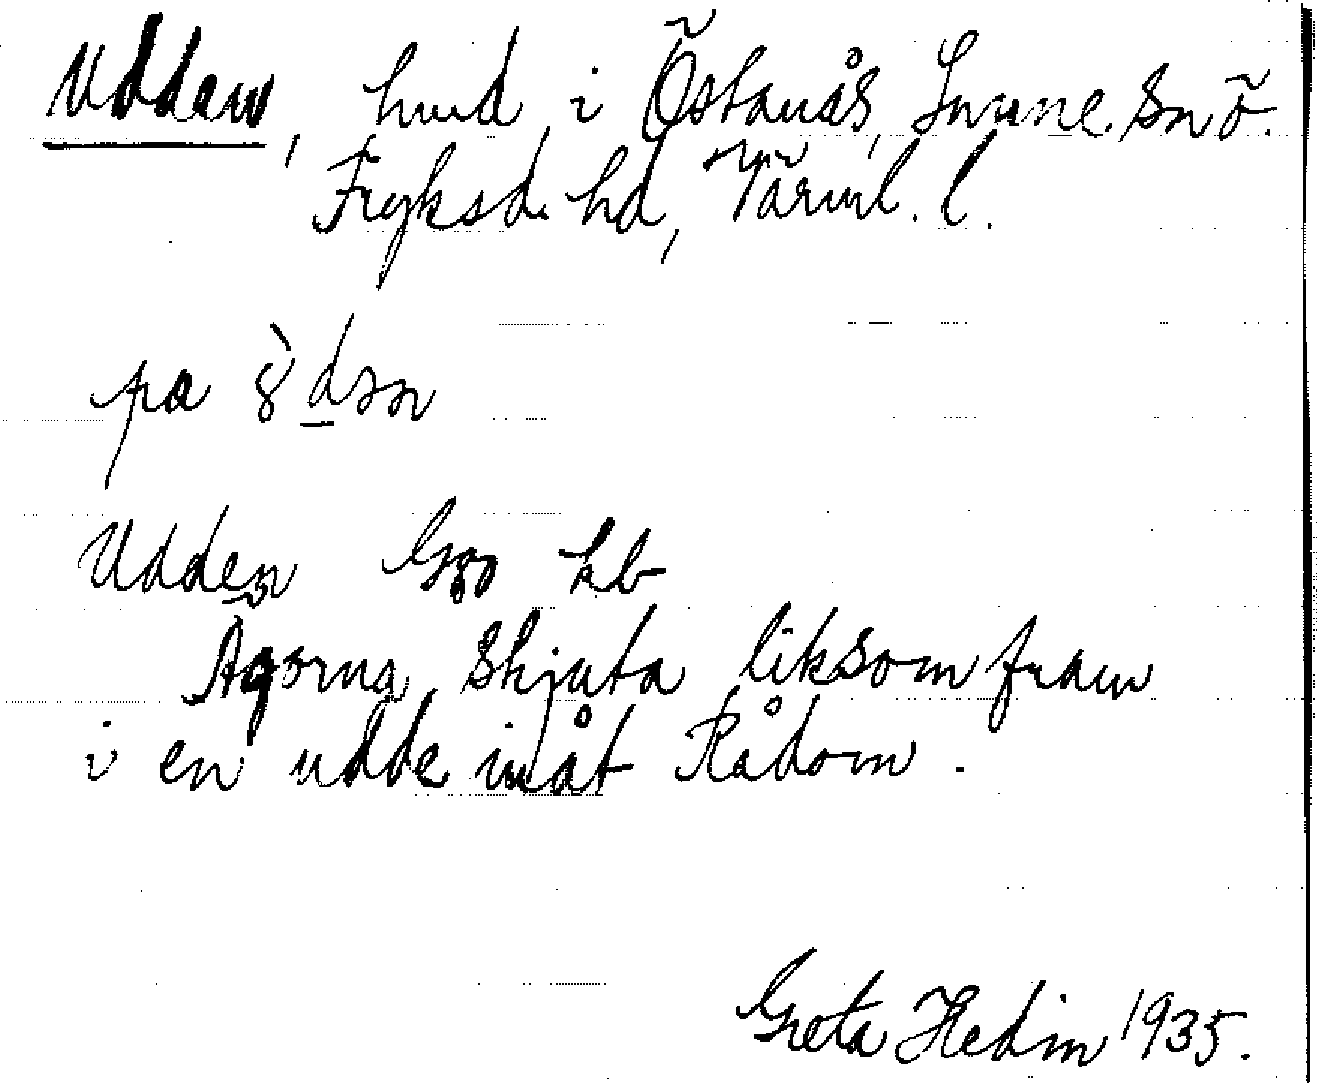 Udden, hmd, i Östanås, Sunne sn ö.
Fryksd. hd, Värml. l.
pa
Udden Gzo kb
Ägorna skjuta liksom fram
i en udde inåt Rådom.
Greta Hedin 1935.